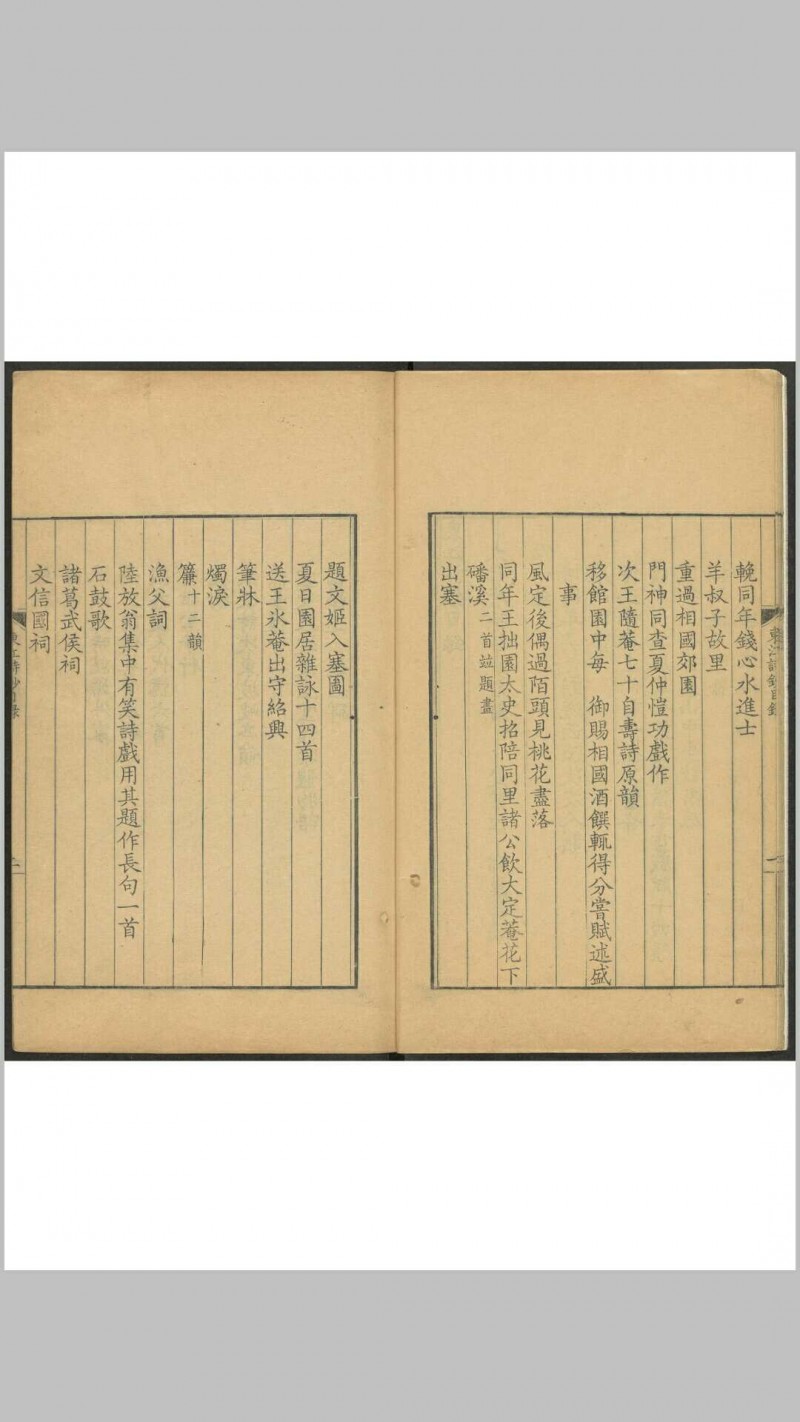 輓同年錢心水進士
羊叔子故里
重過相國郊園
門神同查夏仲愷功戲作
次王隨菴七十自壽詩原韻
移館園中每　御賜相國酒饌輒得分嘗賦述盛
事
風定後偶過陌頭見桃花盡落
同年王拙園太史招陪同里諸公飲大定菴花下
磻溪二首竝題畫
出塞
題文姬入塞圖
夏日園居雜詠十四首
送王氷菴出守紹興
筆牀
燭淚
簾十二韻
漁父詞
陸放翁集中有笑詩戲用其題作長句一首
石鼓歌
諸葛武侯祠
文信國祠